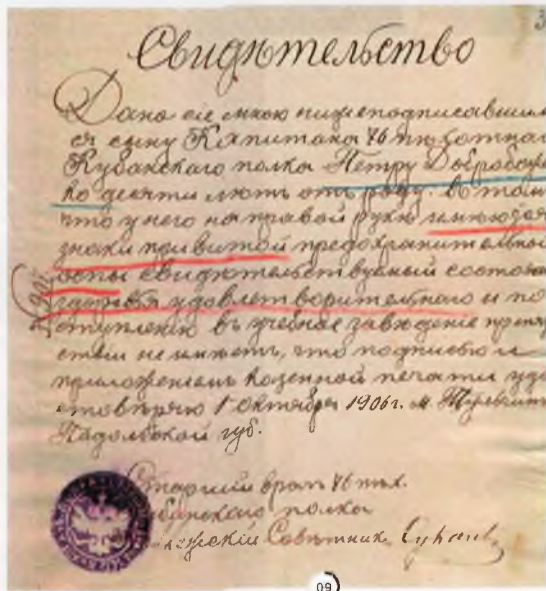 Свидѣтельство
Дано сіе мною нижеподписавшим
ся сыну Капитана 76 пѣхотнаго
Кубанскаго полка Петру Добробоже
ко десяти лѣтъ отъ роду. въ томъ
что у него на правой рукѣ имѣются
знаки привитой предохранительной
оспы свидѣтельствуемый состоянія
здоровья удовлетворительнаго и по
ступленію въ учебное заведеніе препят
ствій не имѣетъ, что подписью и
приложеніемъ казенной печати удо
стовѣряю 1 Октября 1906 г. м.
Подольской губ.
Старшій врачъ 76 пѣх.
Кубанскаго полка
Совѣтникъ
09